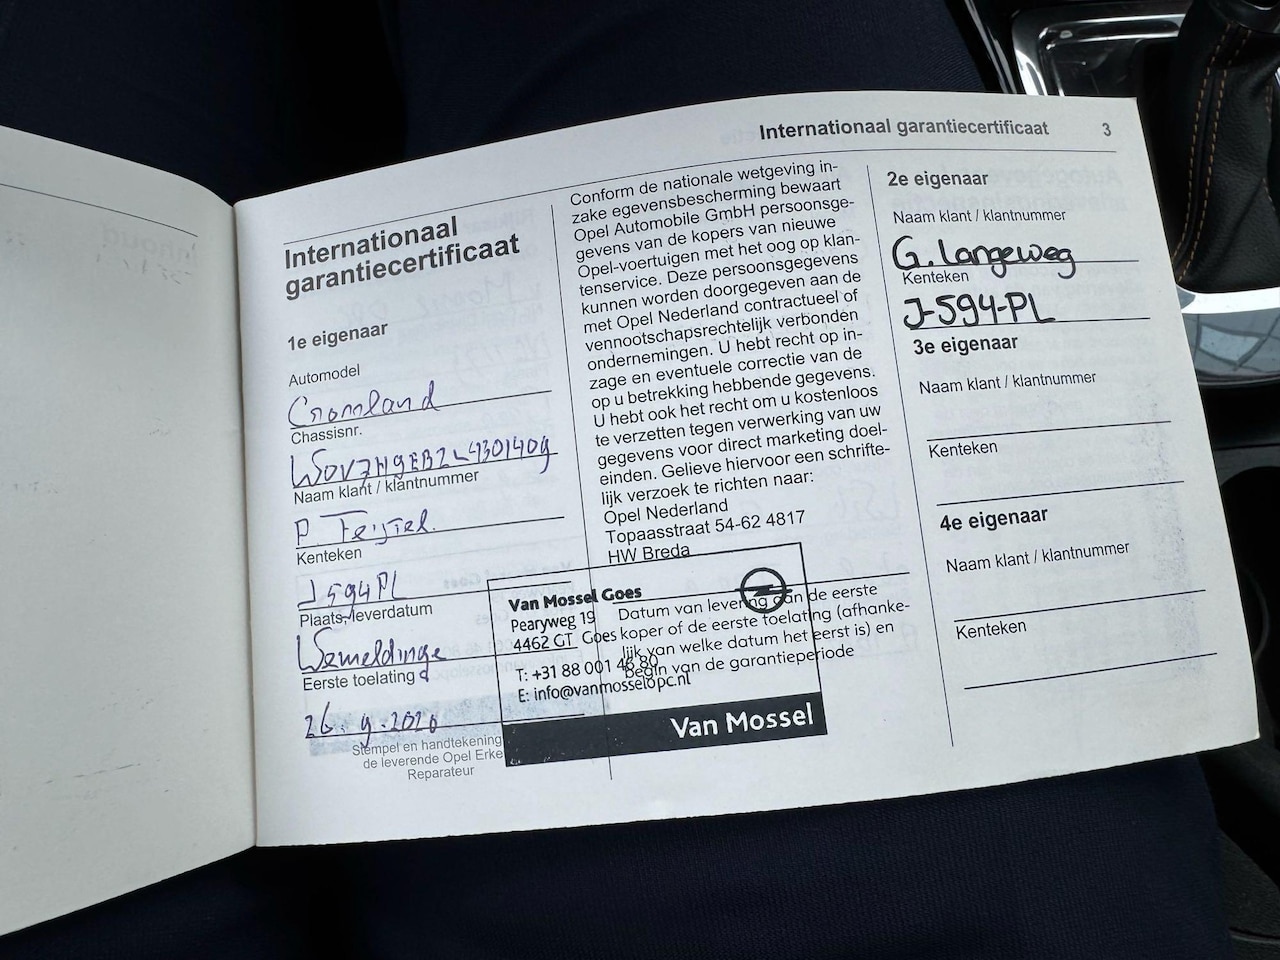 Internationaal garantiecertificaat 3
Internationaal
garantiecertificaat
1e eigenaar
Automodel
Crossland
Chassisnr.
W0V7H9EB2L4301409
Naam klant / klantnummer
P
Kenteken
J594PL
Plaats, leverdatum
Wemeldinge
Eerste toelating
26-9-2020
Stempel en handtekening
de leverende Opel Erke
Reparateur
Conform de nationale wetgeving in-
zake egevensbescherming bewaart
Opel Automobile GmbH persoonsge-
gevens van de kopers van nieuwe
Opel-voertuigen met het oog op klan-
tenservice. Deze persoonsgegevens
kunnen worden doorgegeven aan de
met Opel Nederland contractueel of
vennootschapsrechtelijk verbonden
ondernemingen. U hebt recht op in-
zage en eventuele correctie van de
op u betrekking hebbende gegevens.
U hebt ook het recht om u kosteloos
te verzetten tegen verwerking van uw
gegevens voor direct marketing doel-
einden. Gelieve hiervoor een schrifte-
lijk verzoek te richten naar:
Opel Nederland
Topaasstraat 54-62 4817
HW Breda
Van Mossel Goes
Pearyweg 19
4462 GT Goes
T: +31 88 001 46 80
E: info@vanmosselopc.nl
Van Mossel
Datum van levering aan de eerste
koper of de eerste toelating (afhanke-
lijk van welke datum het eerst is) en
begin van de garantieperiode
2e eigenaar
Naam klant / klantnummer
G. Langeweg
Kenteken
J-594-PL
3e eigenaar
Naam klant / klantnummer
Kenteken
4e eigenaar
Naam klant / klantnummer
Kenteken